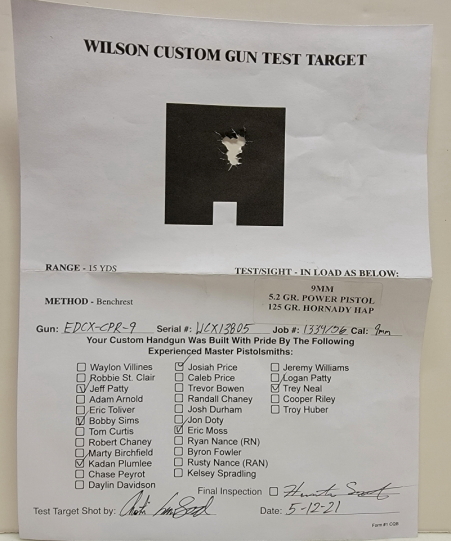 WILSON CUSTOM GUN TEST TARGET
RANGE - 15 YDS
TEST/SIGHT - IN LOAD AS BELOW:
METHOD - Benchrest
9MM
5.2 GR. POWER PISTOL
125 GR. HORNADY HAP
Gun: EDCX-CPR-9 Serial #: WCX13805 Job #: Cal: 9mm
Your Custom Handgun Was Built With Pride By The Following
Experienced Master Pistolsmiths:
Waylon Villines Josiah Price Jeremy Williams
Robbie St. Clair Caleb Price Logan Patty
Jeff Patty Trevor Bowen Trey Neal
Adam Arnold Randall Chaney Cooper Riley
Eric Toliver Josh Durham Troy Huber
Bobby Sims Jon Doty
Tom Curtis Eric Moss
Robert Chaney Ryan Nance (RN)
Marty Birchfield Byron Fowler
Kadan Plumlee Rusty Nance (RAN)
Chase Peyrot Kelsey Spradling
Daylin Davidson
Final Inspection
Test Target Shot by: Date: 5-12-21